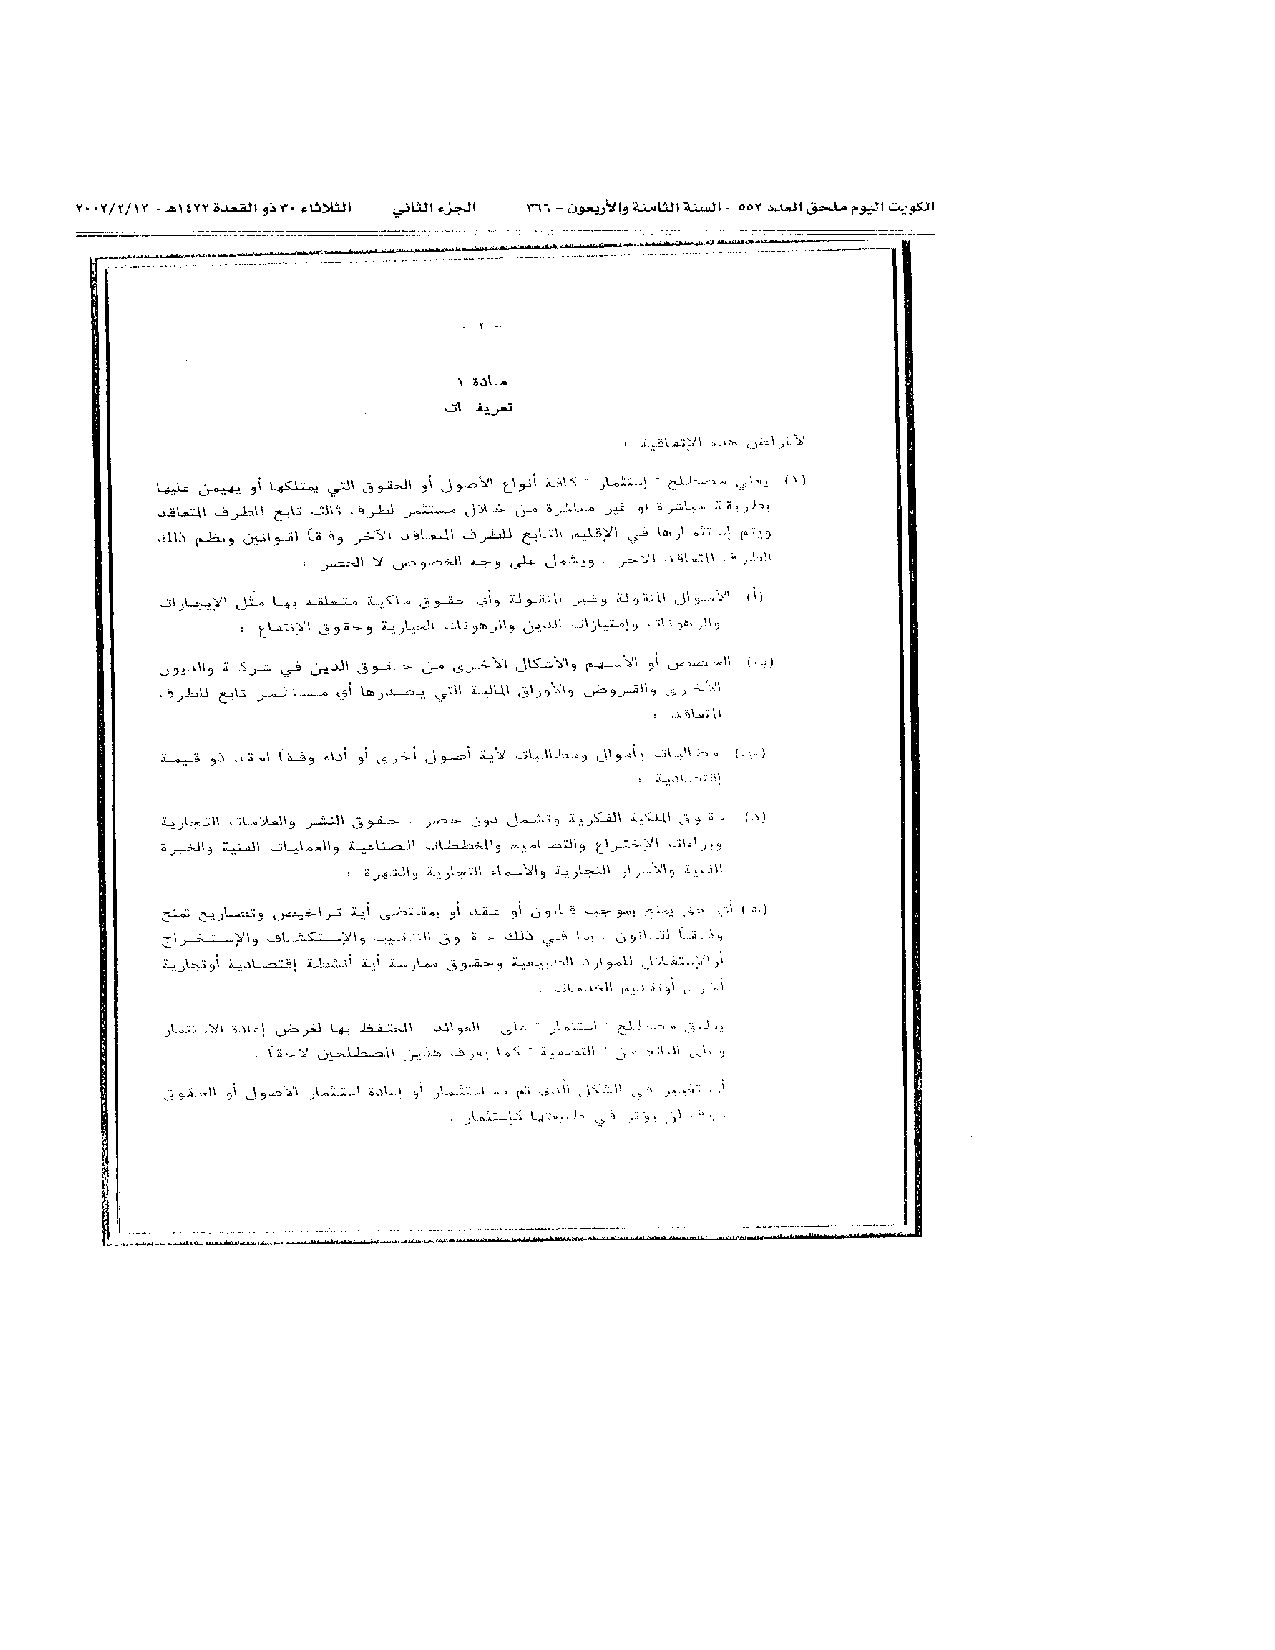 الكويت اليوم ملحق العدد ٥٥٢ - السنة الثامنة والأربعون - ٣٦٦ الجزء الثاني الثلاثاء ٣٠ ذو القعدة ١٤٢٢هـ - ٢٠٠٢/٢/١٢
- ٢ -
مادة ١
تعريفات
لأغراض هذه الإتفاقية :
(١) يعني مصطلح " إستثمار " كافة أنواع الأصول أو الحقوق التي يمتلكها أو يهيمن عليها
بطريقة مباشرة أو غير مباشرة من خلال مستثمر لطرف ثالث تابع للطرف المتعاقد
ويتم إستثمارها في الإقليم التابع للطرف المتعاقد الآخر وفقاً لقوانين ونظم ذلك
الطرف المتعاقد الآخر . ويشمل على وجه الخصوص لا الحصر :
(أ) الأموال المنقولة وغير المنقولة وأي حقوق ملكية متعلقة بها مثل الإيجارات
والرهونات وإمتيازات الدين والرهونات الحيازية وحقوق الإنتفاع :
(ب) الحصص أو الأسهم والأشكال الأخرى من حقوق الدين في شركة والديون
الأخرى والقروض والأوراق المالية التي يصدرها أي مستثمر تابع للطرف
المتعاقد :
(جـ) مطالبات بأموال ومطالبات لأية أصول أخرى أو أداء وفقاً لعقد ذو قيمة
إقتصادية :
(د) حقوق الملكية الفكرية وتشمل دون حصر ، حقوق النشر والعلامات التجارية
وبراءات الإختراع والتصاميم والمخططات الصناعية والعمليات الفنية والخبرة
الفنية والأسرار التجارية والأسماء التجارية والشهرة :
(هـ) أي حق يمنح بموجب قانون أو عقد أو بمقتضى أية تراخيص وتصاريح تمنح
وفقاً للقانون ، بما في ذلك حقوق التنقيب والإستكشاف والإستخراج
أو الإستغلال للموارد الطبيعية وحقوق ممارسة أية أنشطة إقتصادية أو تجارية
أخرى أو تقديم الخدمات .
يطبق مصطلح " استثمار " على العوائد المحتفظ بها لغرض إعادة الاستثمار
وعلى الناتج من " التصفية " كما يعرف هذين المصطلحين لاحقاً .
أي تغيير في الشكل الذي تم به استثمار أو إعادة استثمار الأصول أو الحقوق
سوف لن يؤثر في طبيعتها كإستثمار .